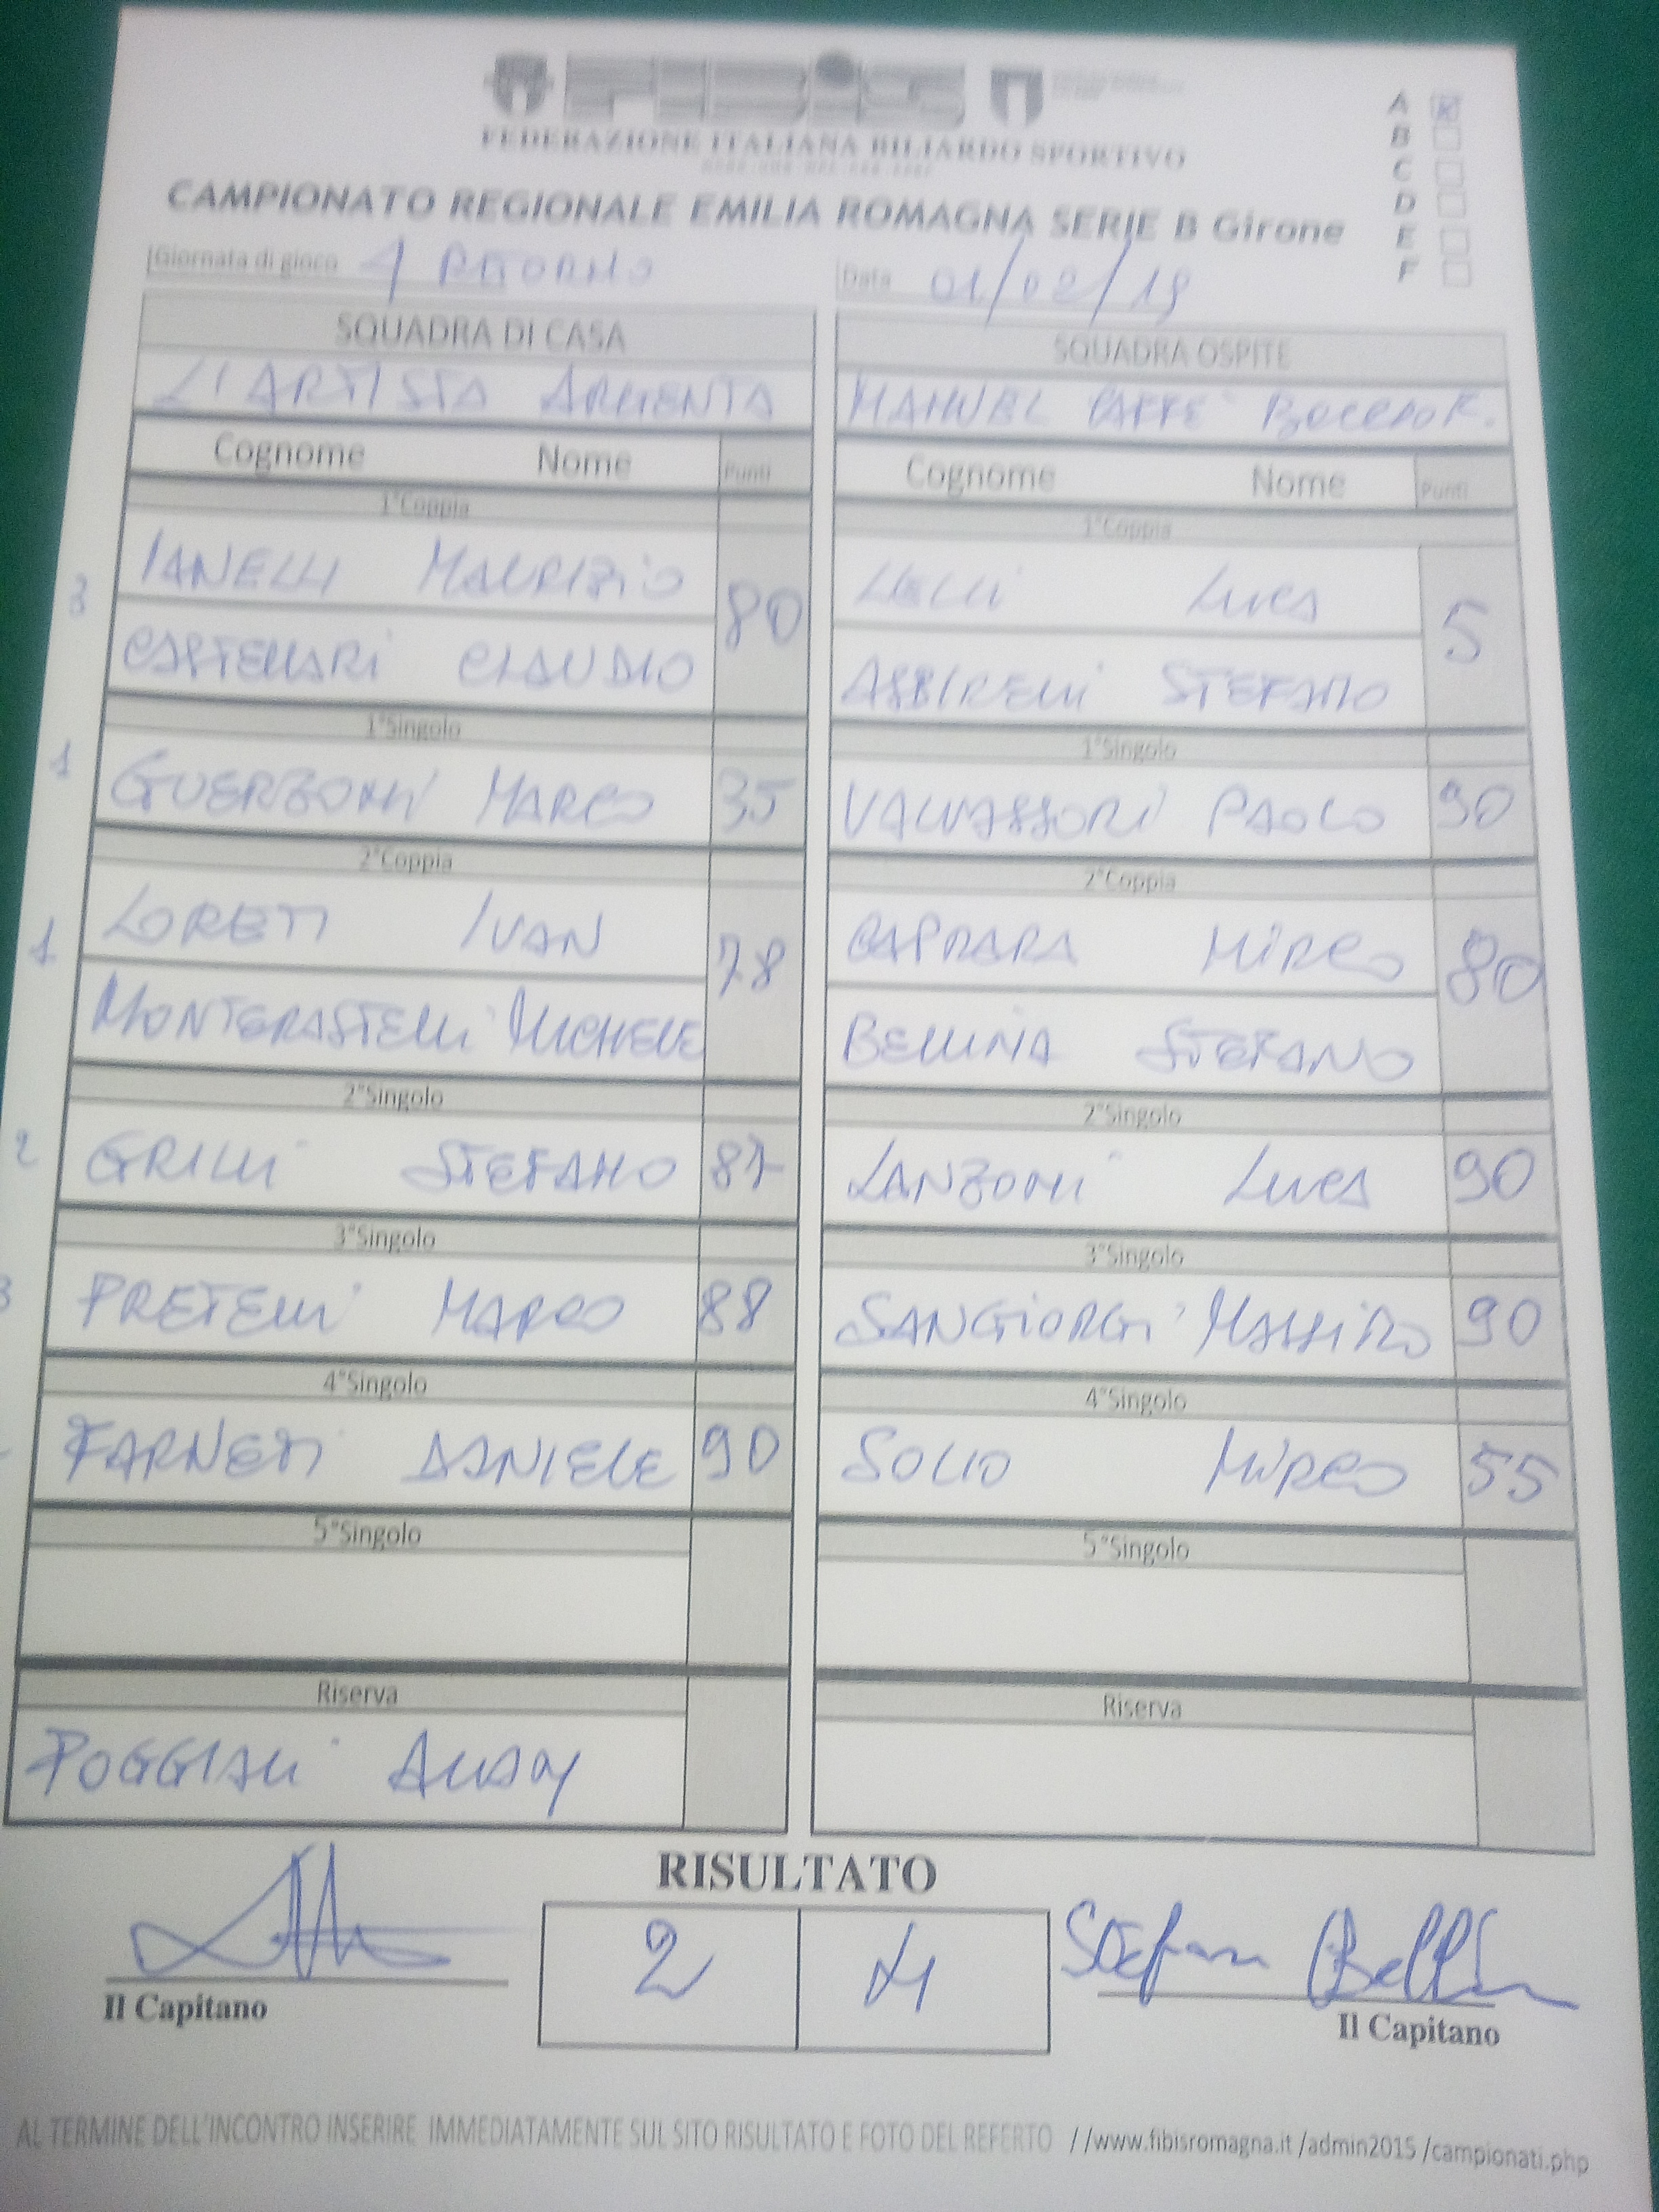 FIBiS
FEDERAZIONE ITALIANA BILIARDO SPORTIVO
CAMPIONATO REGIONALE EMILIA ROMAGNA SERIE B Girone
A
B
C
D
E
F
Giornata di gioco RITORNO
Data 01/02/19
SQUADRA DI CASA
L'ARTISTA ARGENTA
Cognome Nome Punti
1°Coppia
3 IANELLI MAURIZIO 80
CASTELLARI CLAUDIO
1°Singolo
1 GUERZONI MARCO 35
2°Coppia
1 LORETI IVAN 78
MONTERASTELLI MICHELE
2°Singolo
2 GRILLI STEFANO 87
3°Singolo
3 PRETELLI MARCO 88
4°Singolo
FARNETI DANIELE 90
5°Singolo
Riserva
POGGIALI
SQUADRA OSPITE
MANUEL CAFFE'
Cognome Nome Punti
1°Coppia
LELLI LUCA 5
STEFANO
1°Singolo
VALVASSORI PAOLO 90
2°Coppia
CAPRARA MIRCO 80
BELLINA STEFANO
2°Singolo
LANZONI LUCA 90
3°Singolo
SANGIORGI MASSIMO 90
4°Singolo
MIRCO 55
5°Singolo
Riserva
RISULTATO
2 4
Il Capitano
Stefano
Il Capitano
AL TERMINE DELL'INCONTRO INSERIRE IMMEDIATAMENTE SUL SITO RISULTATO E FOTO DEL REFERTO //www.fibisromagna.it /admin2015 /campionati.php